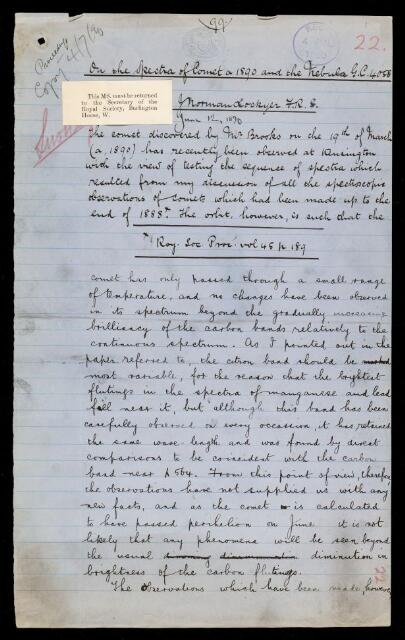 99
Proceedings
Copy 4/7/90
22.
On the Spectra of Comet a 1890 and the Nebula G.C. 4058
This MS. must be returned
to the Secretary of the
Royal Society, Burlington
House, W.
J Norman Lockyer F.R.S.
June 12, 1890
The comet discovered by Mr Brooks on the 19th of March
(a, 1890) has recently been observed at Kensington
with the view of testing the sequence of spectra which
resulted from my discussion of all the spectroscopic
observations of comets which had been made up to the
end of 1888.* The orbit, however, is such that the
* Roy. Soc. Proc. vol 45 p 189
comet has only passed through a small range
of temperature, and no changes have been observed
in its spectrum beyond the gradually increasing
brilliancy of the carbon bands relatively to the
continuous spectrum. As I pointed out in the
paper referred to, the citron band should be
most variable, for the reason that the brightest
flutings in the spectra of manganese and lead
fall near it, but although this band has been
carefully observed on every occasion, it has retained
the same wave-length and was found by direct
comparisons to be coincident with the carbon
band near λ 564. From this point of view, therefore,
the observations have not supplied us with any
new facts, and as the comet is calculated
to have passed perihelion on June it is not
likely that any phenomena will be seen beyond
the usual diminution in
brightness of the carbon flutings.
The observations which have been made, however
22